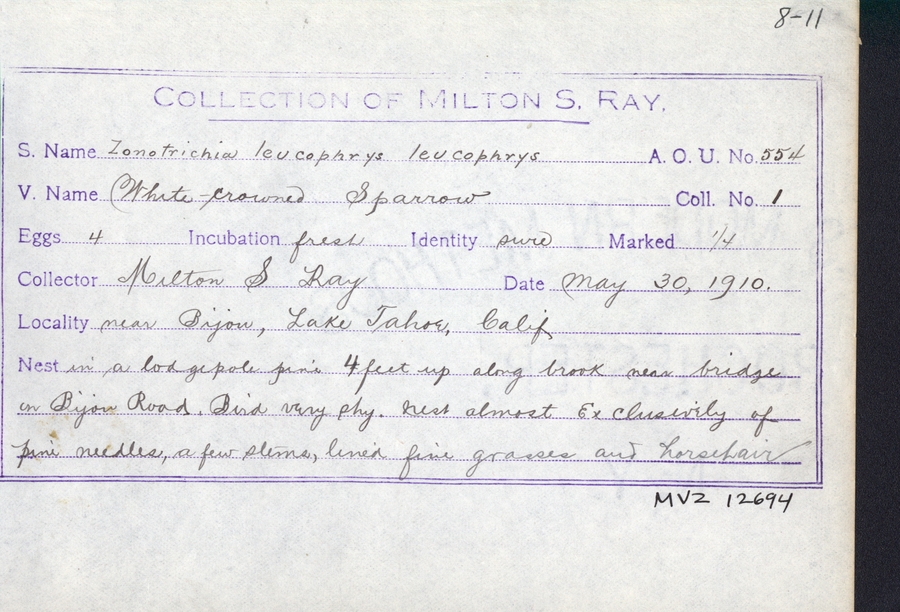 8-11
COLLECTION OF MILTON S. RAY.
S. Name Zonotrichia leucophrys leucophrys A. O. U. No. 554
V. Name White-crowned Sparrow Coll. No. 1
Eggs 4 Incubation fresh Identity sure Marked 1/4
Collector Milton S Ray Date May 30, 1910.
Locality near Bijou, Lake Tahoe, Calif
Nest in a lodgepole pine 4 feet up along brook near bridge
on Bijou Road. Bird very shy. Nest almost Exclusively of
pine needles, a few stems, lined fine grasses and horsehair
MVZ 12694